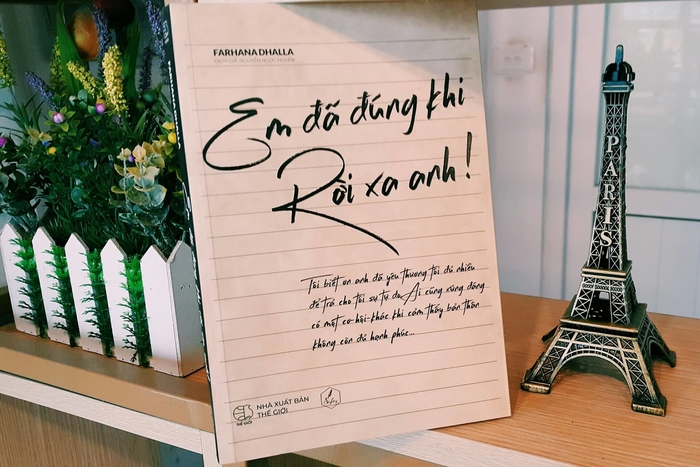 FARHANA DHALLA
Em đã đúng khi
Rời xa anh!
Tôi biết ơn anh đã yêu thương tôi đủ nhiều
để trả cho tôi sự tự do. Ai cũng xứng đáng
có một cơ-hội-khác khi cảm thấy bản thân
không còn đủ hạnh phúc...
NHÀ XUẤT BẢN
THẾ GIỚI
THẾ GIỚI
PARIS